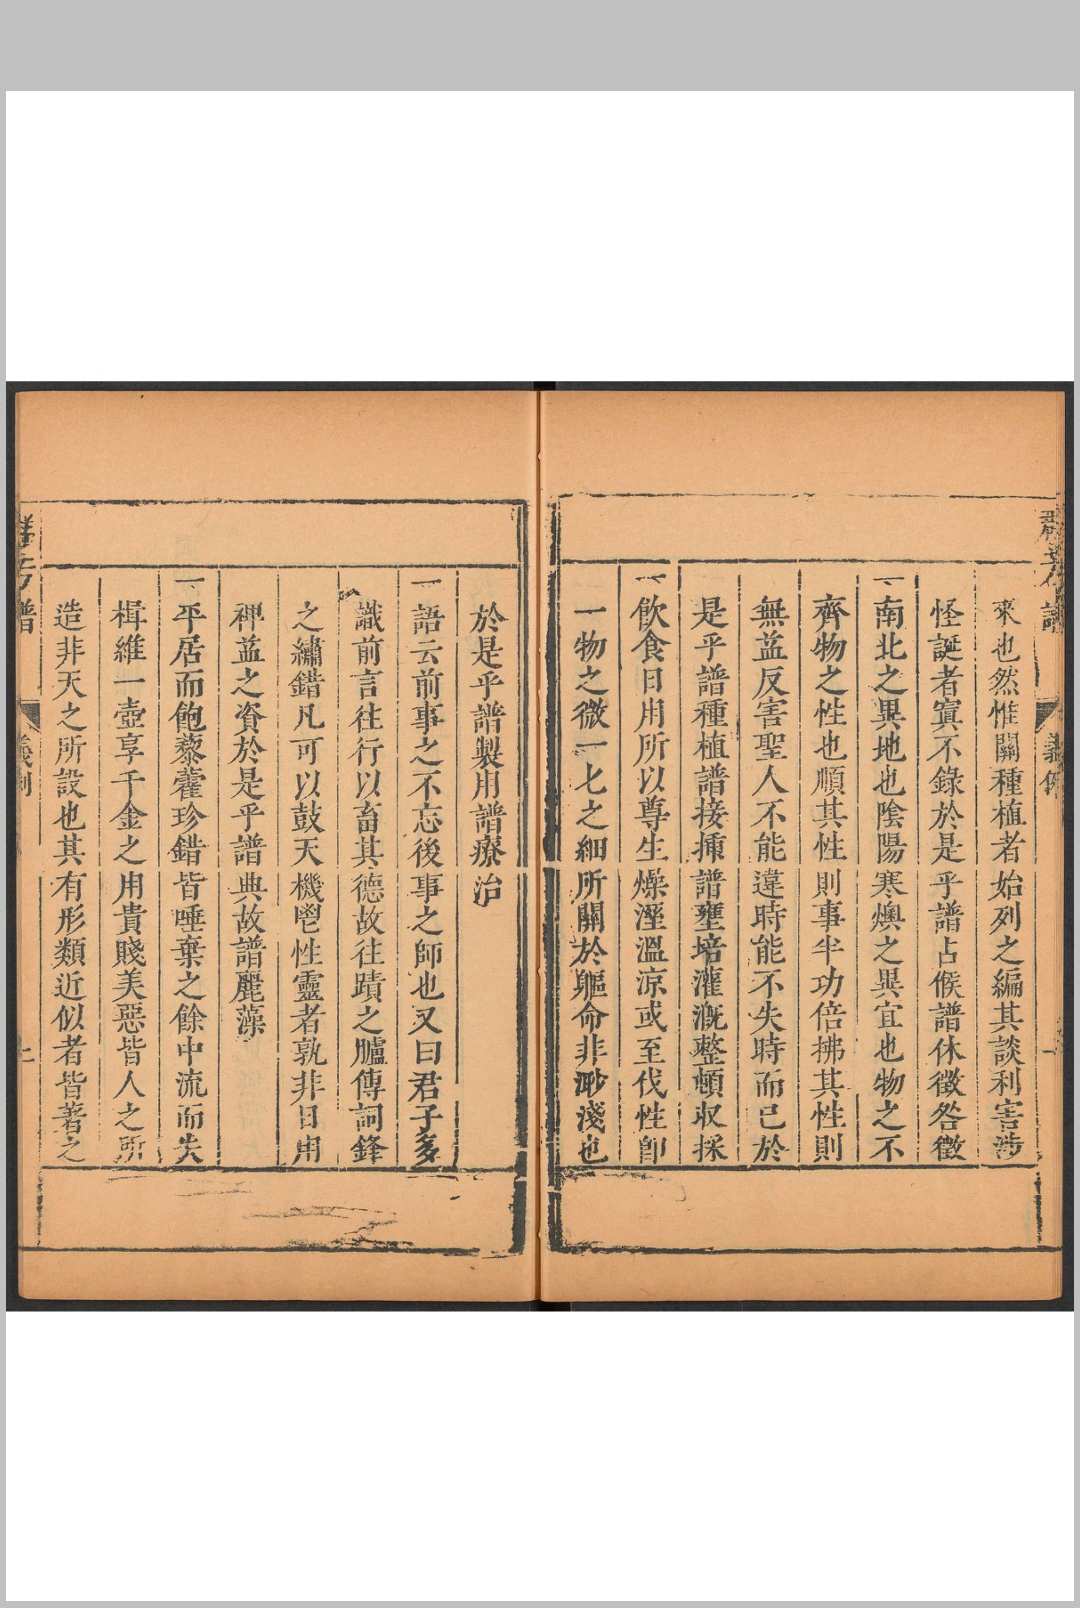 來也然惟關種植者始列之編其談利害涉
怪誕者寘不錄於是乎譜占候譜休徵咎徵
一南北之異地也陰陽寒燠之異宜也物之不
齊物之性也順其性則事半功倍拂其性則
無益反害聖人不能違時能不失時而已於
是乎譜種植譜接揷譜壅培灌漑整頓收採
一飲食日用所以尊生燥溼溫涼或至伐性卽
一物之微一匕之細所關於軀命非渺淺也
於是乎譜製用譜療治
一語云前事之不忘後事之師也又曰君子多
識前言往行以畜其德故往蹟之臚傳詞鋒
之繡錯凡可以鼓天機鬯性靈者孰非日用
裨益之資於是乎譜典故譜麗藻
一平居而飽藜藿珍錯皆唾棄之餘中流而失
楫維一壺享千金之用貴賤美惡皆人之所
造非天之所設也其有形類近似者皆著之